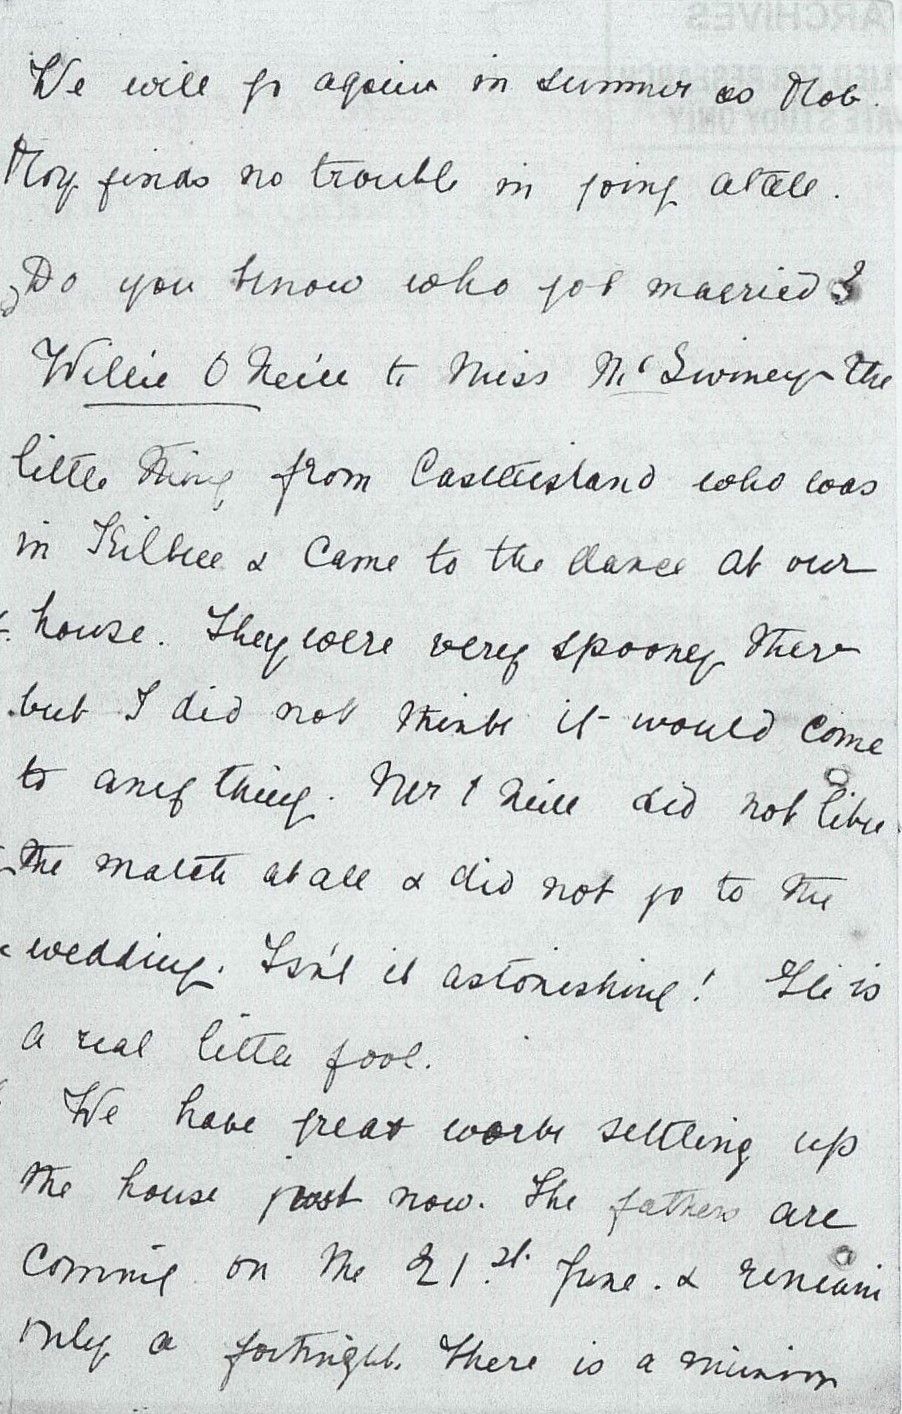 We will go again in summer as Rob
Roy finds no trouble in going atall.
Do you know who got married?
Willie O Neill to Miss McSwiney the
little thing from Castleisland who was
in Kilkee & Came to the dance at our
house. They were very spooney there
but I did not think it would come
to any thing. Mr O Neill did not like
the match at all & did not go to the
wedding. Isn't it astonishing! He is
a real little fool.
We have great work settling up
the house just now. The fathers are
Coming on the 21st. June. & remain
only a fortnight. There is a mission